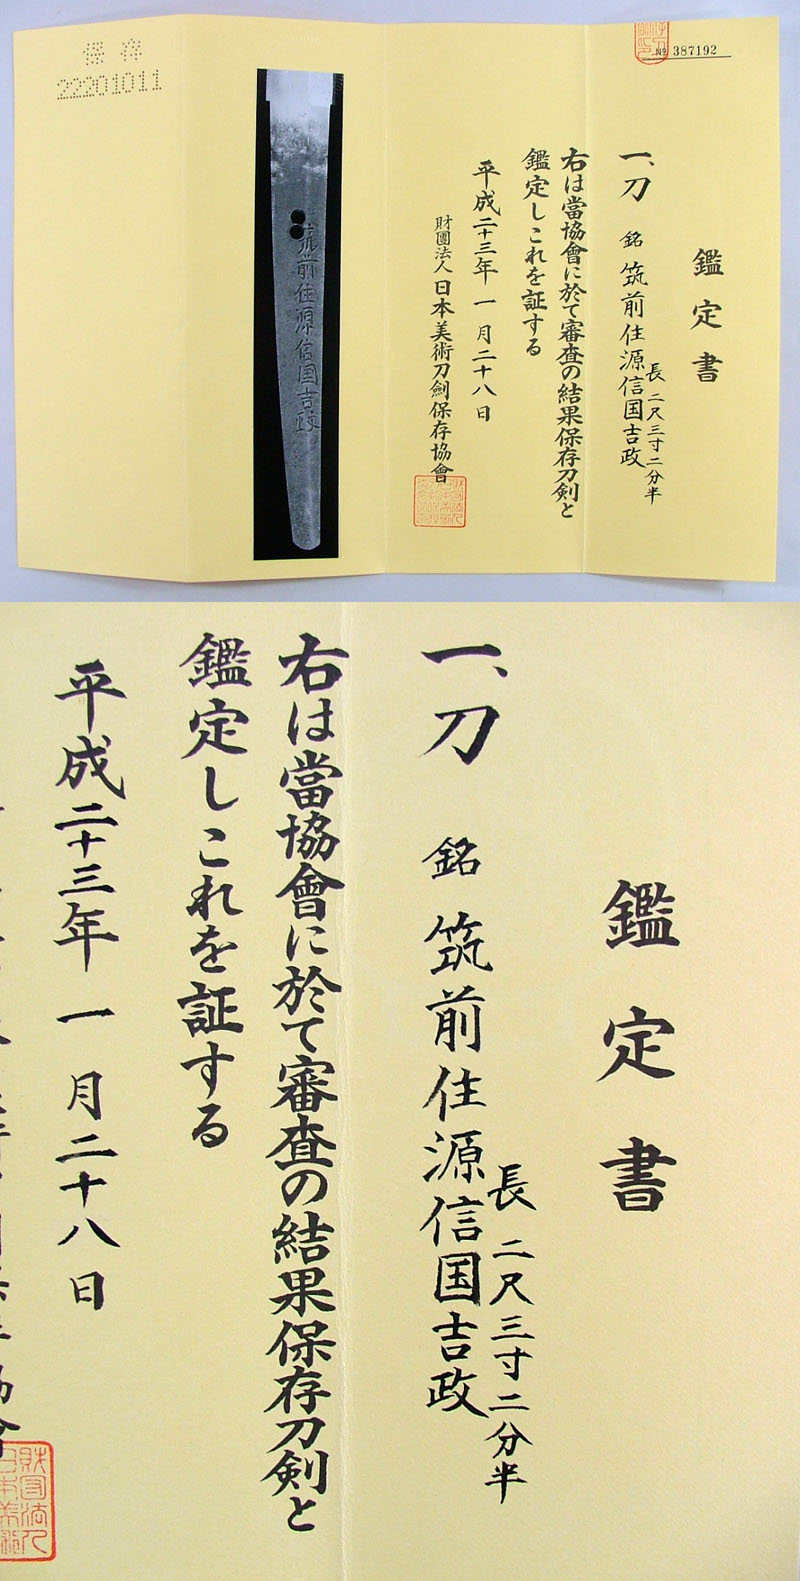 保存
22201011
筑前住源信国吉政
№ 387192
鑑定書
一、刀 銘 筑前住源信国吉政
長 二尺三寸二分半
右は當協會に於て審査の結果保存刀剣と
鑑定しこれを証する
平成二十三年一月二十八日
財團法人 日本美術刀劍保存協會
鑑定書
一、刀 銘 筑前住源信国吉政
長 二尺三寸二分半
右は當協會に於て審査の結果保存刀剣と
鑑定しこれを証する
平成二十三年一月二十八日